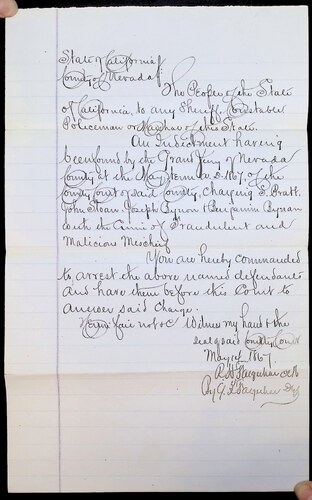 State of California
County of Nevada
The People of the State
of California, to any Sheriff Constable
Policeman or Marshal of this State.
An Indictment having
been found by the Grand Jury of Nevada
County at the May term A.D. 1867 of the
County Court of said County, charging S. Pratt,
John Sloan, Joseph Bynon & Benjamin Bynan
with the Crime of Fraudulent and
Malicious Mischief
You are hereby commanded
to arrest the above named defendants
and have them before this Court to
answer said charge.
Witness my hand & the
seal of said County Court
May 1867.
R. H. Farquhar Clk
By G. L. Farquhar Dep